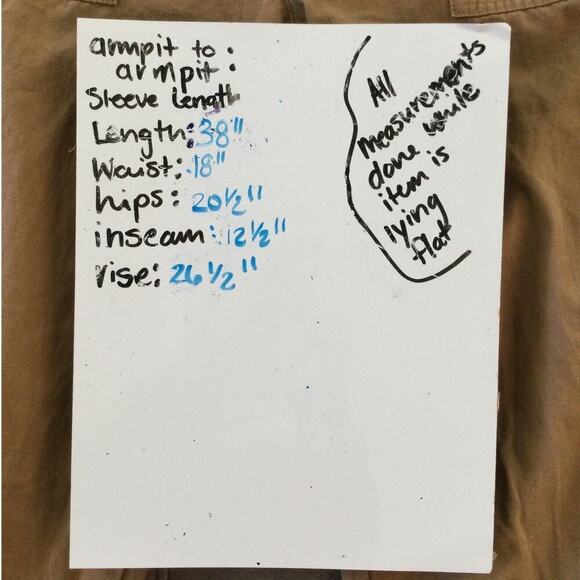 armpit to :
armpit :
Sleeve Length
Length: 38"
Waist: 18"
hips: 20 1/2"
inseam: 12 1/2"
rise: 26 1/2"
All
measurements
done while
item is
lying
flat